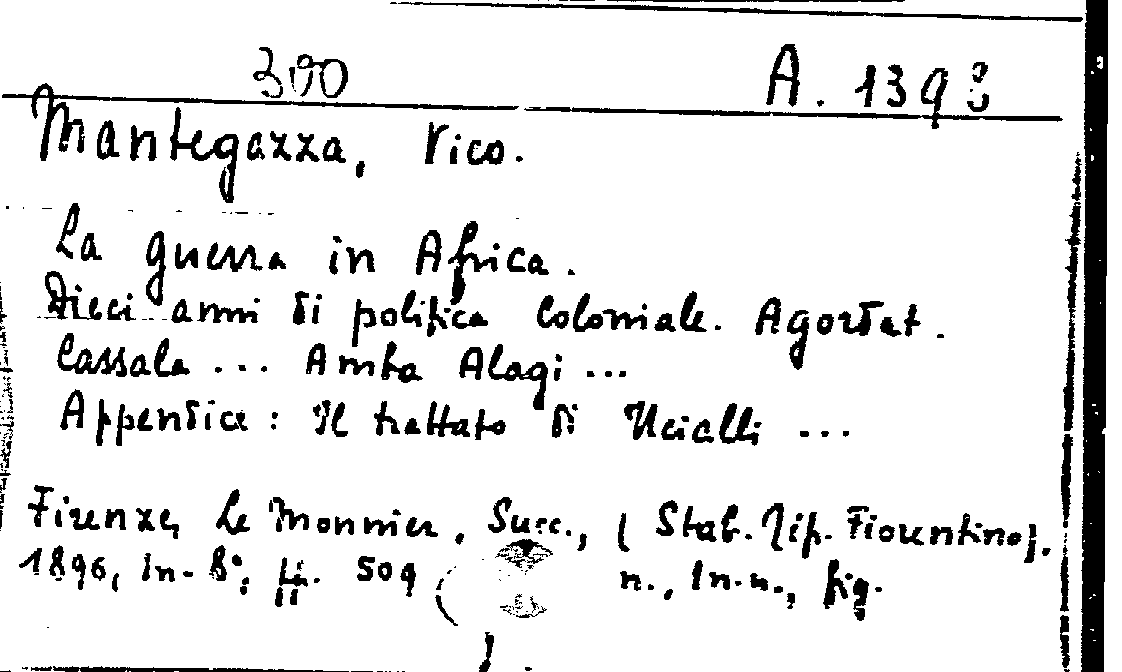 300 A. 1393
Mantegazza, Vico.
La guerra in Africa.
Dieci anni di politica coloniale. Agordat.
Cassala ... Amba Alagi ...
Appendice: Il trattato di Ucialli ...
Firenze, Le Monnier, Succ., (Stab. Tip. Fiorentino).
1896, in-8°, pp. 509 ( n., in-n., fig.